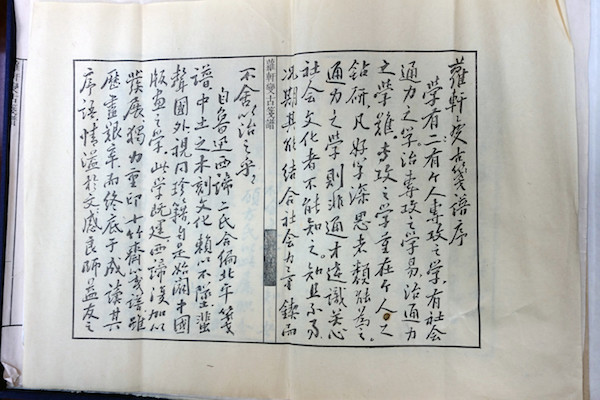 蘿軒變古箋譜序
學有二有个人專攻之學有社会
通力之學治專攻之學易治通力
之學難專攻之學重在个人之
钻研凡好學深思者類能為之
通力之學則非通才達識苦心
社会文化者不能知之知且不易
况期其能结合社会力量鍥而
蘿軒變古箋譜
不舍以治之乎
自魯迅西諦二氏合编北平箋
譜中土之木刻文化賴以不墜蜚
聲國外視同珍籍自是始闢中國
版画之學此學既建西諦復加以
擴展獨力重印十竹齋箋譜雖
歷盡艱辛而終底于成讀其
序语情溢於文感良師益友之
軒變古箋譜